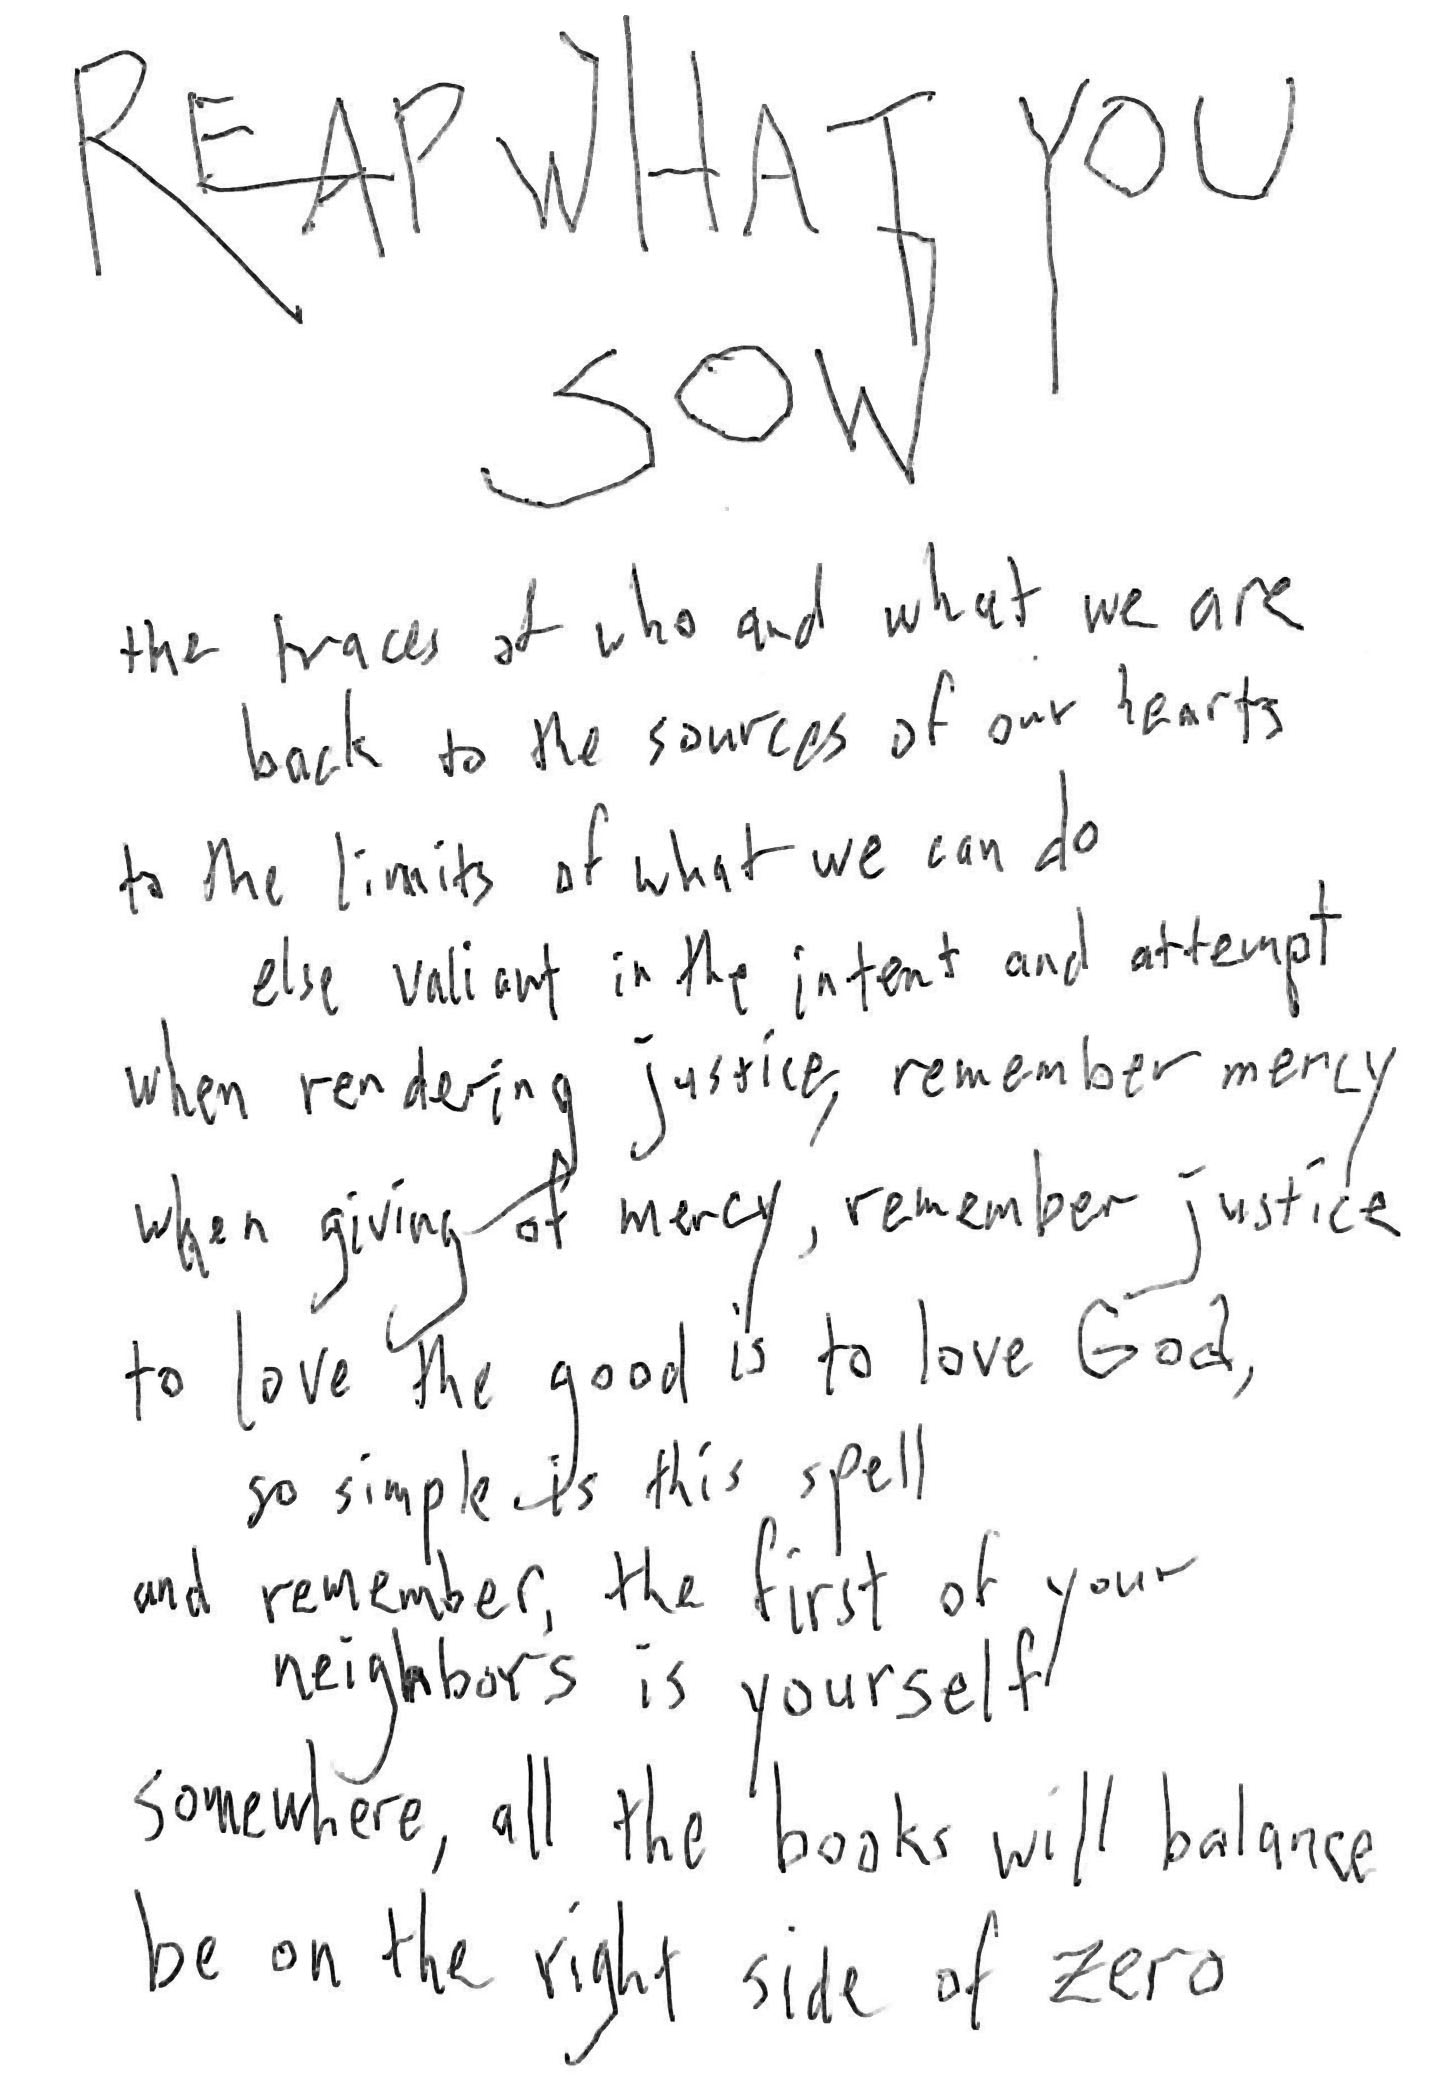 REAP WHAT YOU
SOW
the traces of who and what we are
back to the sources of our hearts
to the limits of what we can do
else valiant in the intent and attempt
when rendering justice, remember mercy
when giving of mercy, remember justice
to love the good is to love God,
so simple is this spell
and remember, the first of your
neighbors is yourself
somewhere, all the books will balance
be on the right side of zero